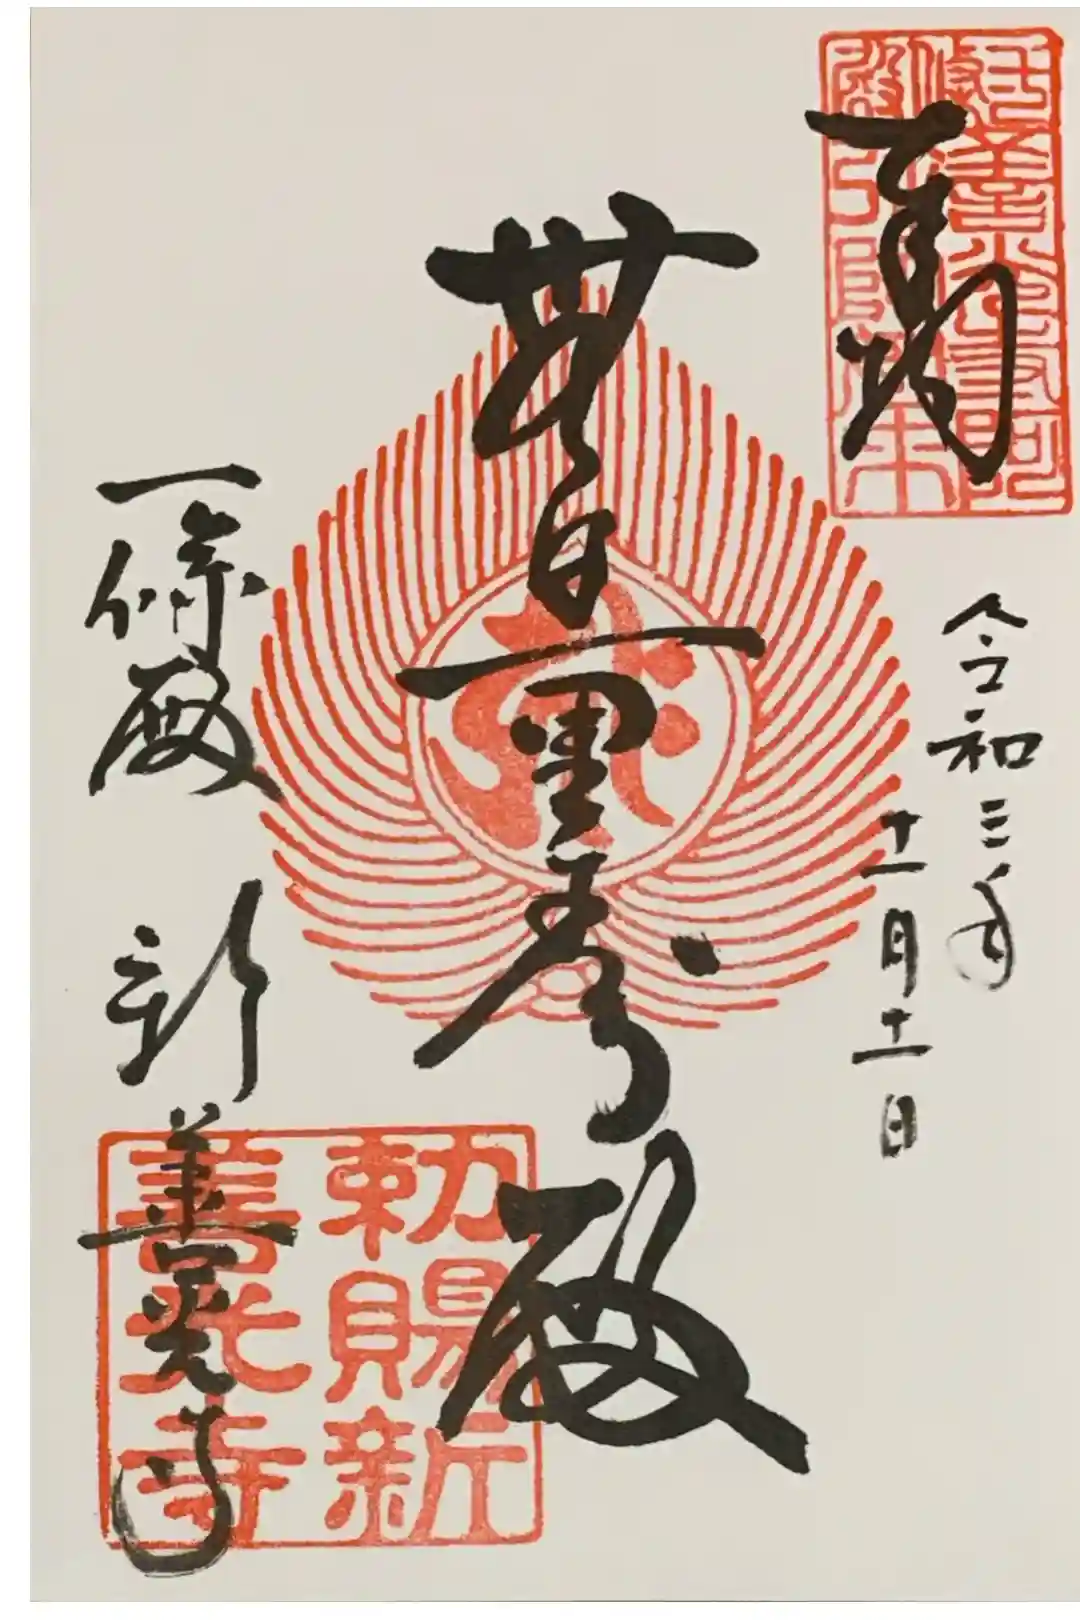 令和三年
十一月十一日
無量寿殿
一條殿 新善光寺
勅賜新
善光寺